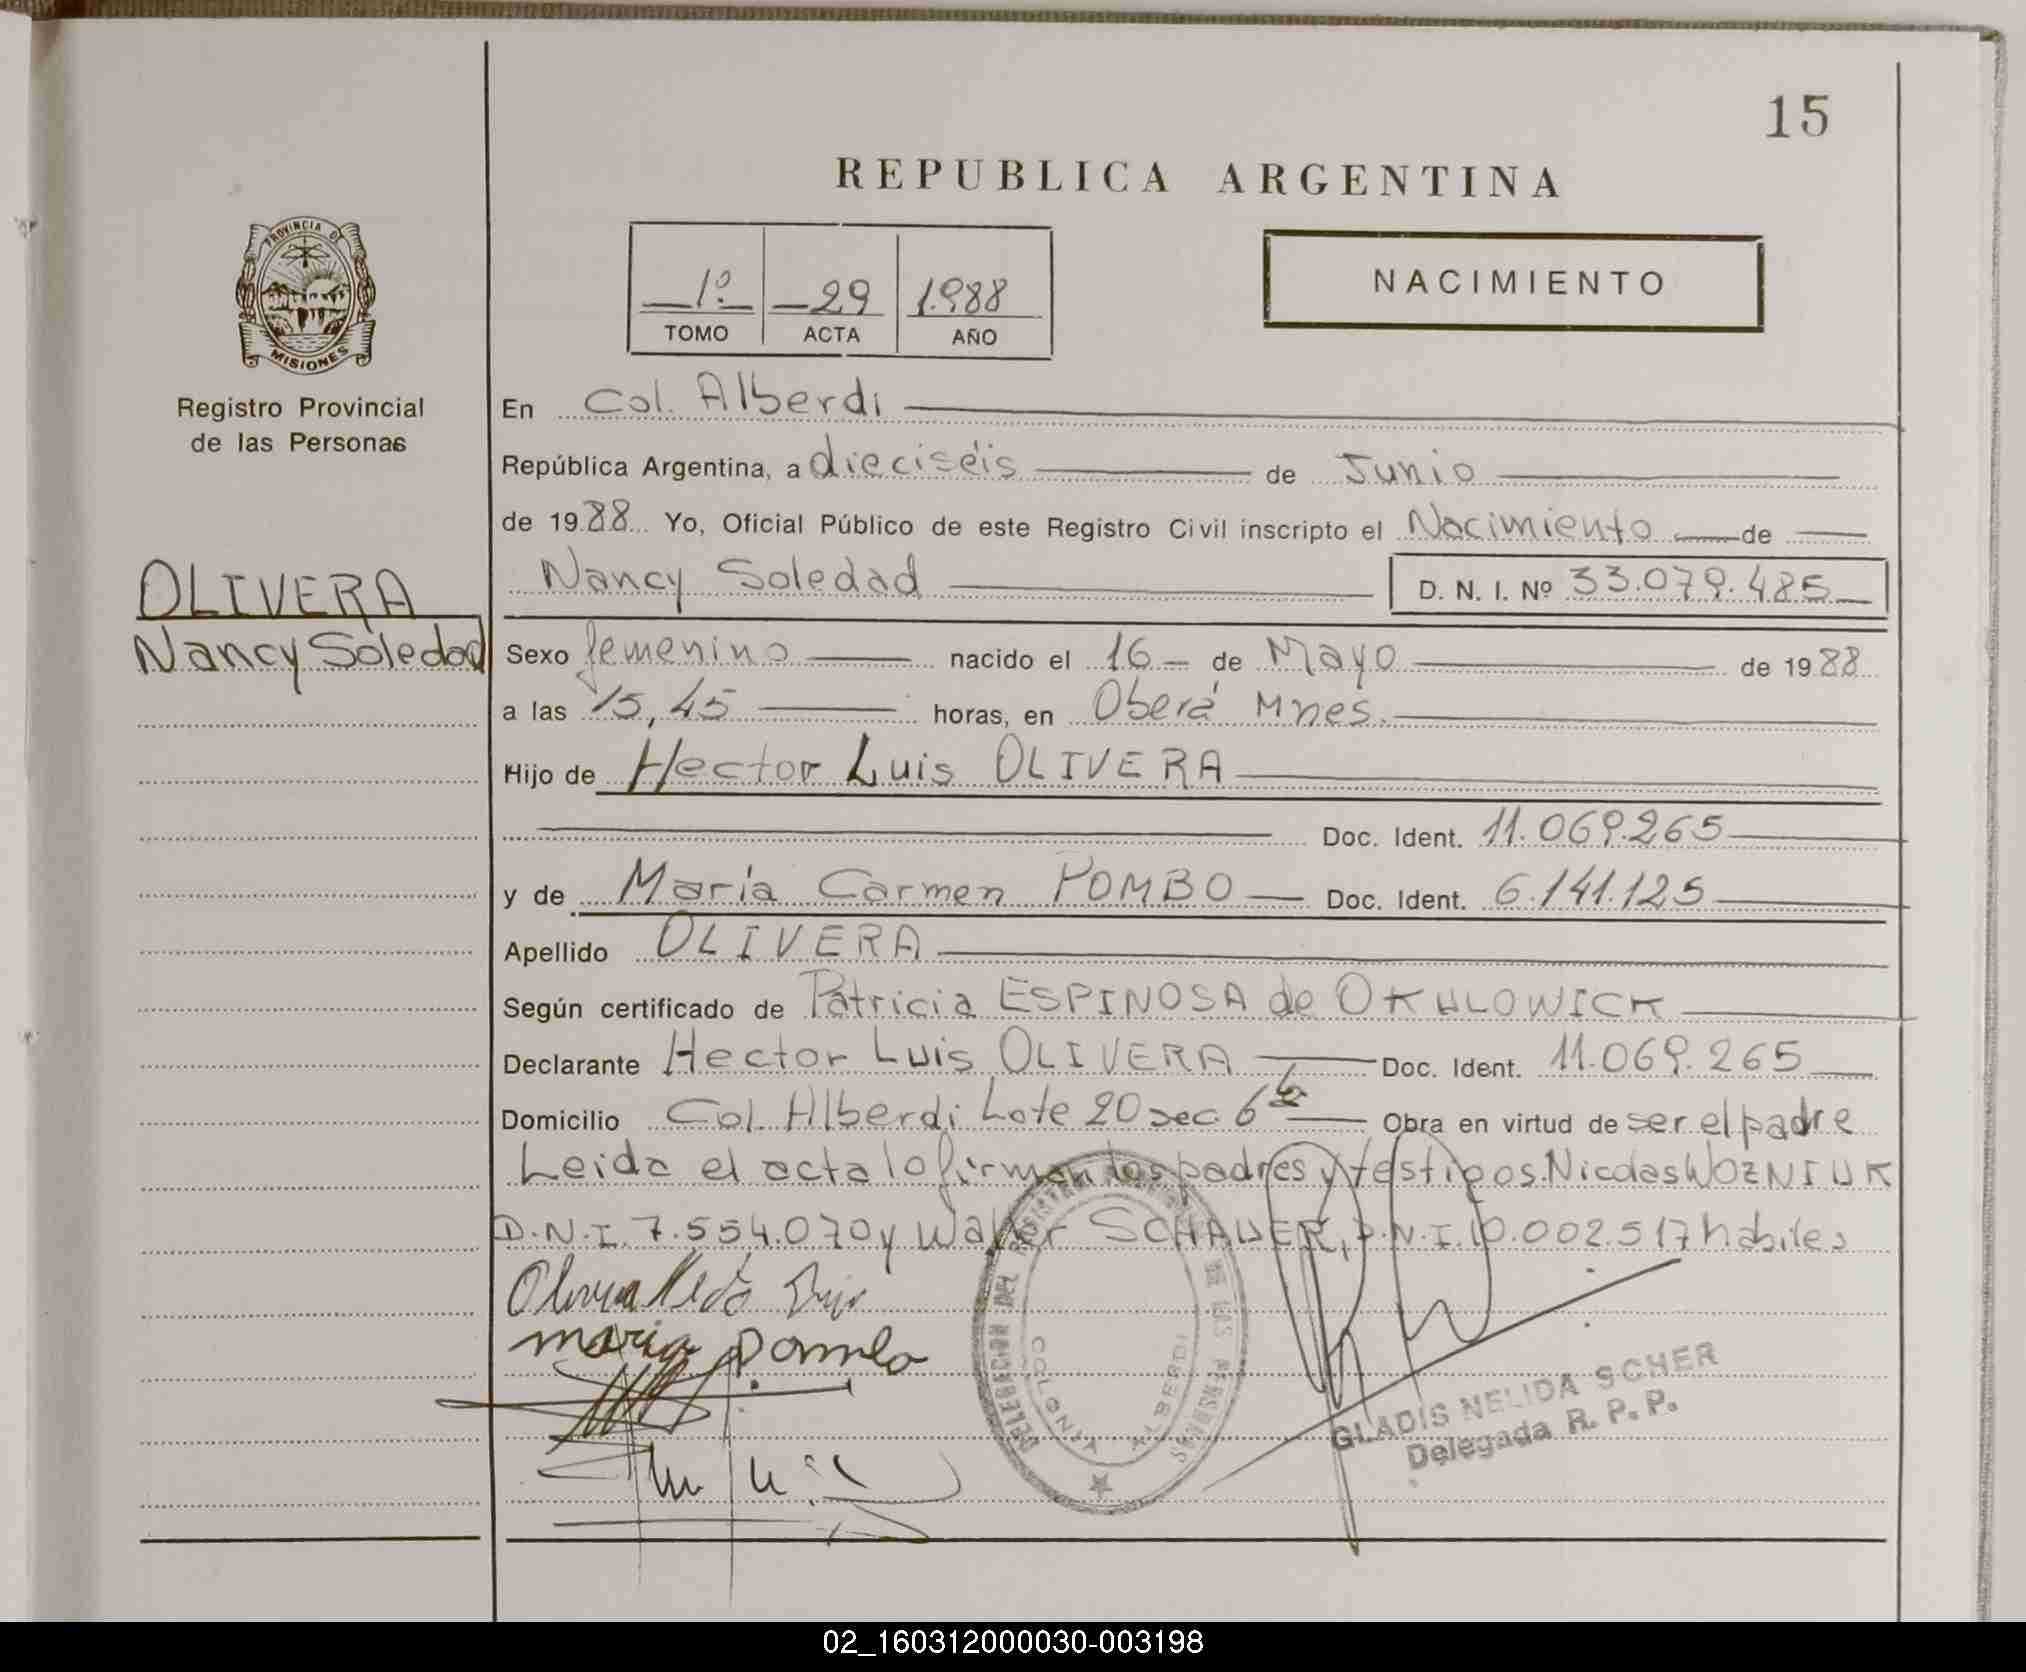 15
REPUBLICA ARGENTINA
1º 29 1.988
TOMO ACTA AÑO
NACIMIENTO
PROVINCIA DE
MISIONES
Registro Provincial
de las Personas
OLIVERA
Nancy Soledad
En Col. Alberdi
República Argentina, a dieciséis de Junio
de 1988 Yo, Oficial Público de este Registro Civil inscripto el Nacimiento de
Nancy Soledad D. N. I. Nº 33.079.485
Sexo femenino nacido el 16 de Mayo de 1988
a las 15,45 horas, en Oberá Mnes.
Hijo de Hector Luis OLIVERA
Doc. Ident. 11.069.265
y de María Carmen POMBO Doc. Ident. 6.141.125
Apellido OLIVERA
Según certificado de Patricia ESPINOSA de OKULOWICK
Declarante Hector Luis OLIVERA Doc. Ident. 11.069.265
Domicilio Col. Alberdi Lote 20 sec. 6ta Obra en virtud de ser el padre
Leida el acta lo firman los padres y testigos. Nicolas WOZNIUK
D.N.I. 7.554.070 y Walter SCHAUER, D.N.I. 10.002.517 habiles
maria Pombo
DELEGACION DEL REGISTRO PROVINCIAL DE LAS PERSONAS
COLONIA ALBERDI
GLADIS NELIDA SCHER
Delegada R. P. P.
02_160312000030-003198